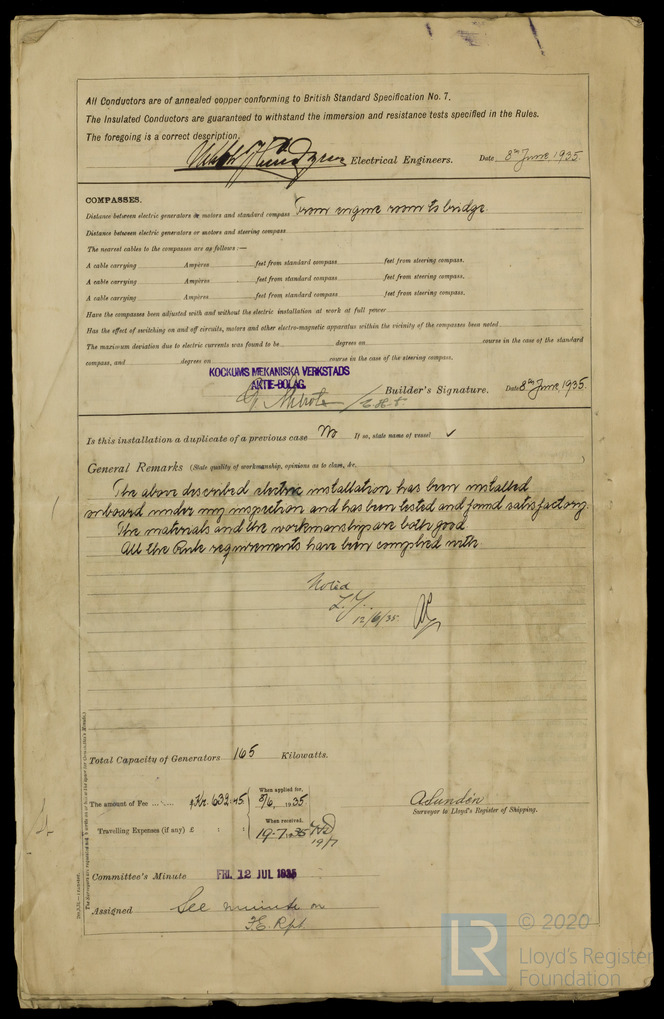 All Conductors are of annealed copper conforming to British Standard Specification No. 7.
The Insulated Conductors are guaranteed to withstand the immersion and resistance tests specified in the Rules.
The foregoing is a correct description.
Electrical Engineers. Date 8th June 1935.
COMPASSES.
Distance between electric generators or motors and standard compass From engine room to bridge
Distance between electric generators or motors and steering compass
The nearest cables to the compasses are as follows:—
A cable carrying Ampères feet from standard compass feet from steering compass.
A cable carrying Ampères feet from standard compass feet from steering compass.
A cable carrying Ampères feet from standard compass feet from steering compass.
Have the compasses been adjusted with and without the electric installation at work at full power
Has the effect of switching on and off circuits, motors and other electro-magnetic apparatus within the vicinity of the compasses been noted
The maximum deviation due to electric currents was found to be degrees on course in the case of the standard
compass, and degrees on course in the case of the steering compass.
KOCKUMS MEKANISKA VERKSTADS
AKTIE-BOLAG.
Builder's Signature. Date 8th June 1935.
Is this installation a duplicate of a previous case No If so, state name of vessel ✓
General Remarks (State quality of workmanship, opinions as to class, &c.)
The above described electric installation has been installed
onboard under my inspection and has been tested and found satisfactory.
The materials and the workmanship are both good
All the Rule requirements have been complied with
Noted
12/6/35
Total Capacity of Generators 165 Kilowatts.
The amount of Fee ... £ Kr. 632:45 When applied for, 8/6, 1935
When received,
Travelling Expenses (if any) £ : : 19.7.1935
19/7
A Sundén
Surveyor to Lloyd's Register of Shipping.
Committee's Minute FRI. 12 JUL 1935
Assigned See minute on
F.E. Rpt.
LR © 2020
Lloyd's Register
Foundation